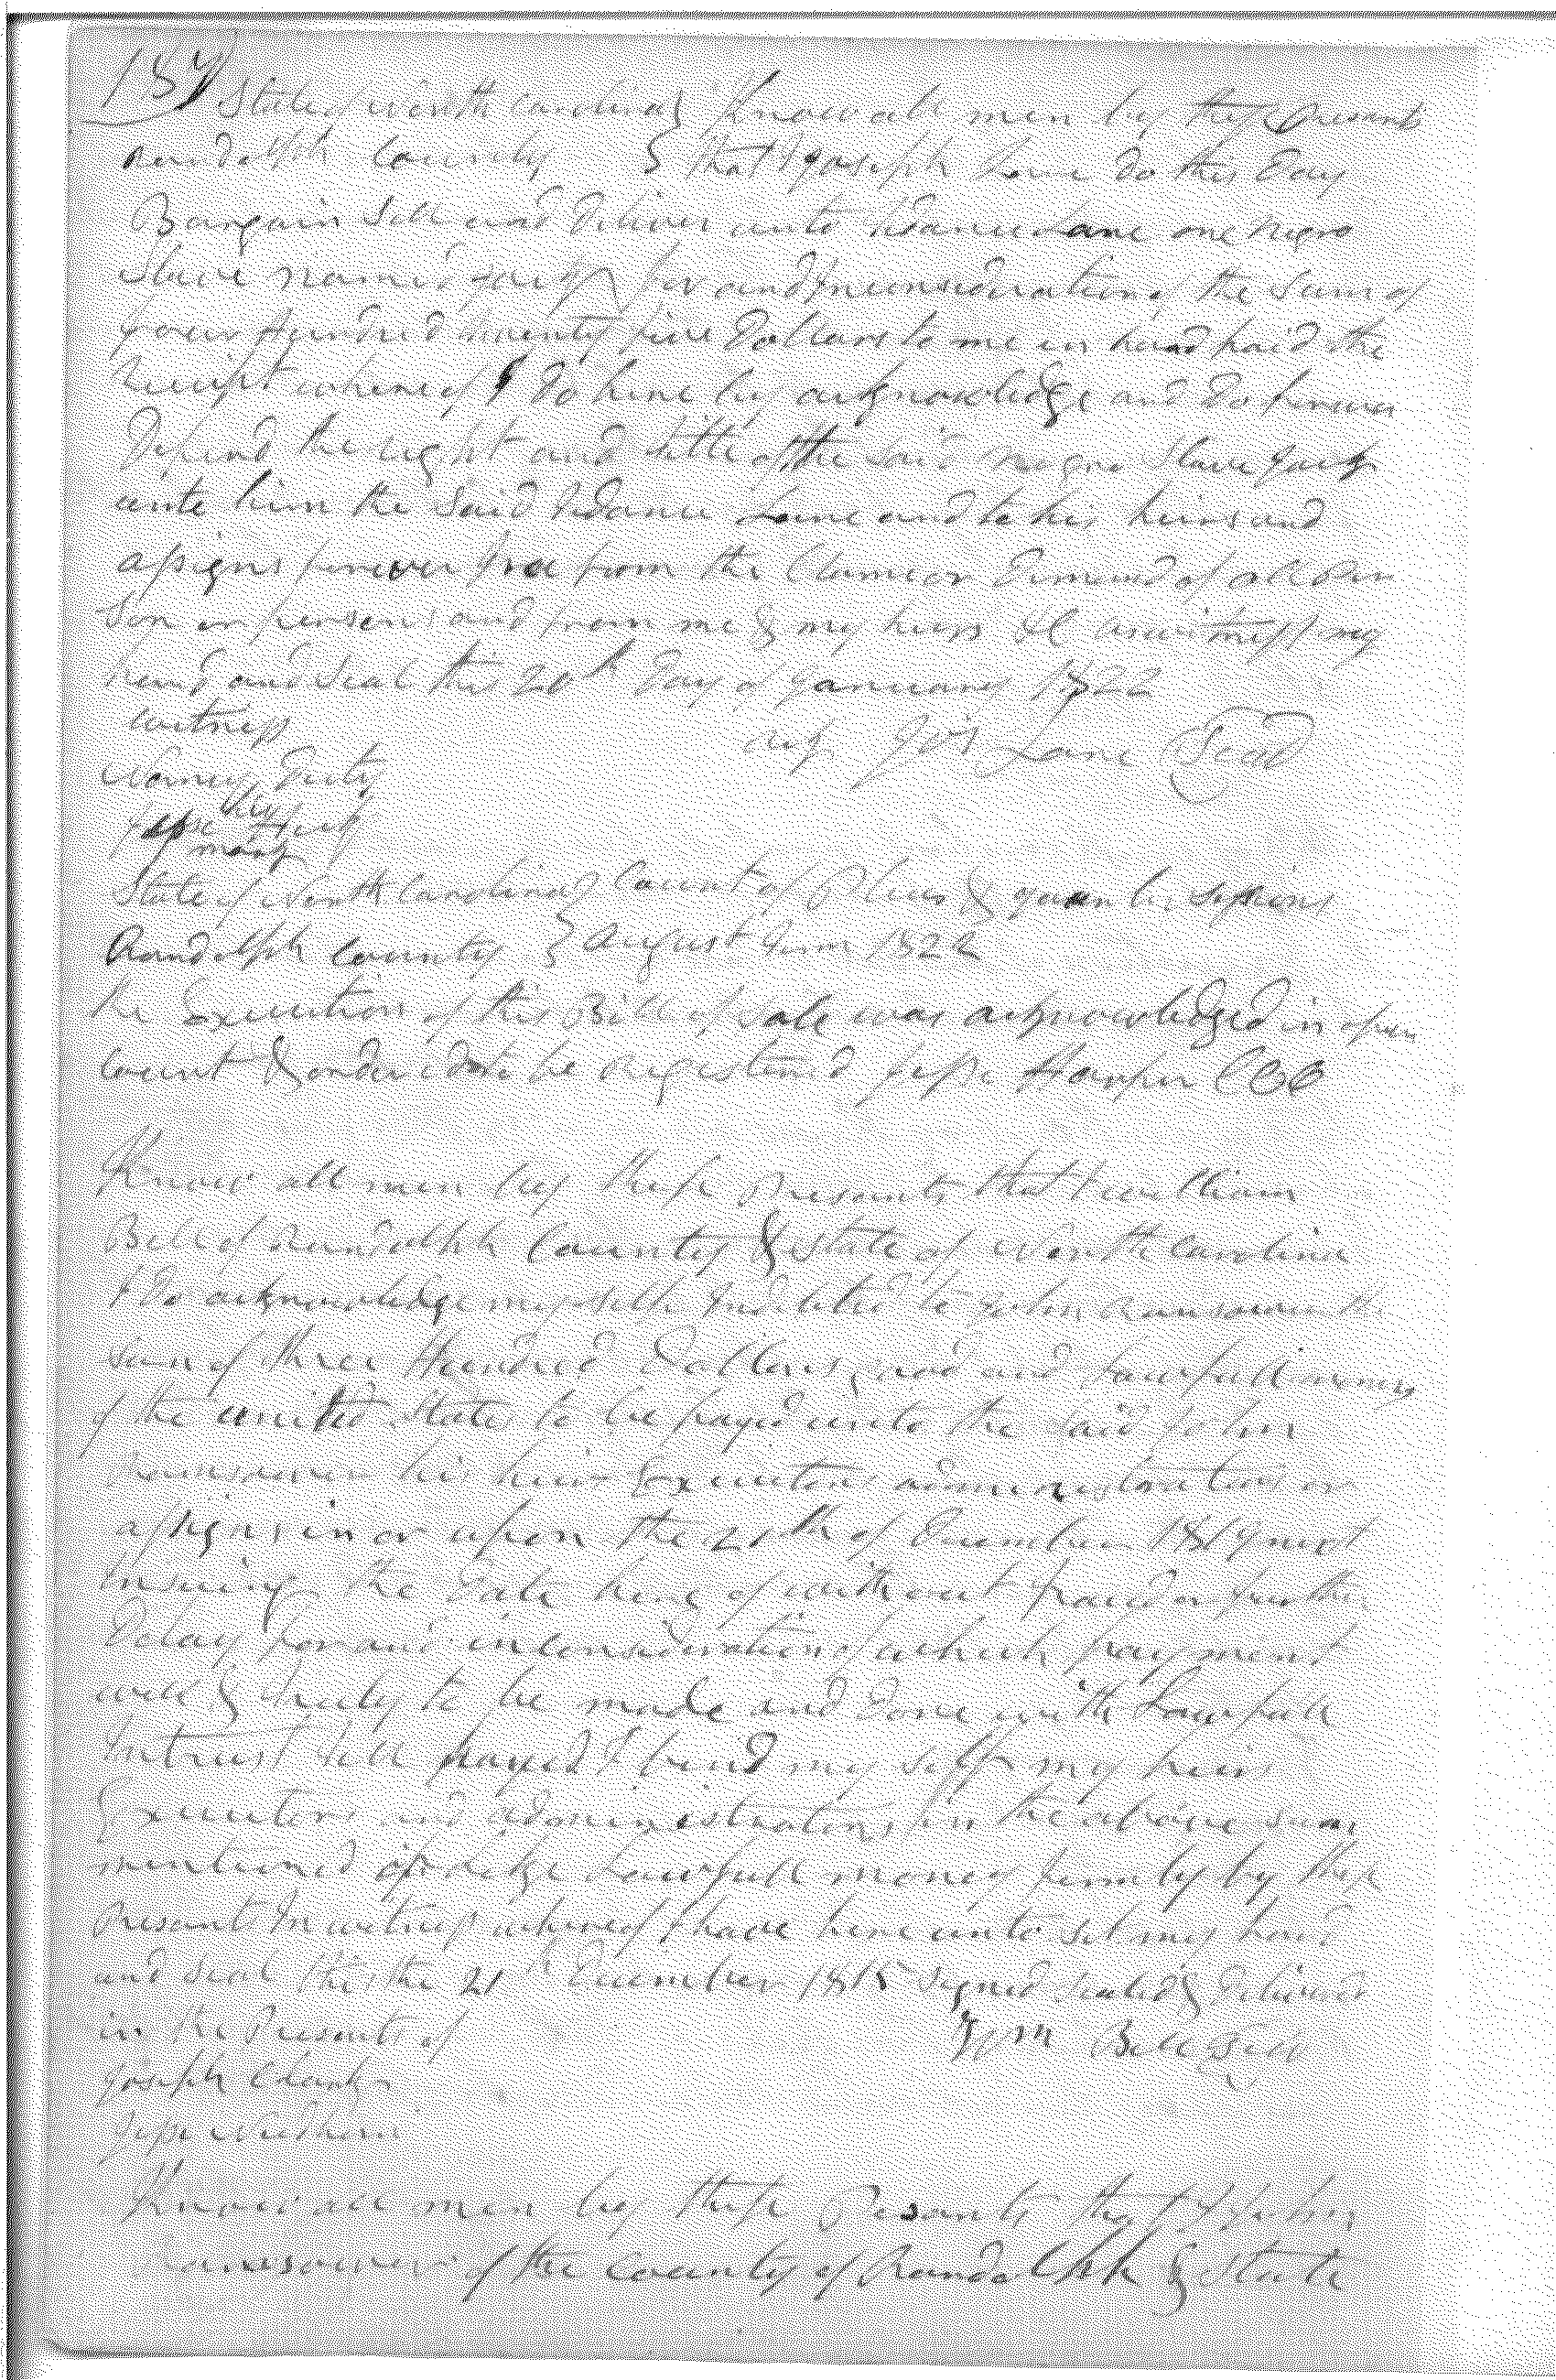 157
State of North Carolina } Know all men by these Presents
Randolph County } that I Joseph Lane do this Day
Bargain Sell and Deliver unto Lane one Negro
Slave named for and In consideration of the Sum of
four Hundred twenty five Dollars to me in hand paid the
Receipt whereof I Do here by acknowledge and do forever
Defend the right and title of the said Negro Slave
unto him the Said Lane and to his heirs and
assigns forever free from the Claim or Demand of all Per
son or persons and from me & my heirs &C as witness my
hand and Seal this 20th Day of January 1822
witness Jos Lane (Seal)
his
mark
State of North Carolina } Court of Pleas & quarter Sessions
Randolph County } August Term 1822
the Execution of this Bill of Sale was acknowledged in open
Court & ordered to be registered Jesse Harper CCC
Know all men by these Presents that I William
Bell of Randolph County & State of North Carolina
I Do acknowledge my Self Indebted to John the
sum of three Hundred Dollars and Lawfull money
of the united States to be payed unto the said John
his heirs Executors administrators or
assigns in or upon the of December next
insuing the Date here of without fraud or further
Delay for and in consideration of which payment
well & truly to be made and done with Lawfull
Intrust till payed I bind my self my heirs
Executors and administrators in the above sum
mentioned of Lawfull money firmly by these
Presents In witness whereof I have here unto set my hand
and seal this the 21 December 1815 signed sealed & Delivered
in the Presents of Wm Bell Seal
Joseph
Know all men by these Presents that I John
of the County of Randolph & State